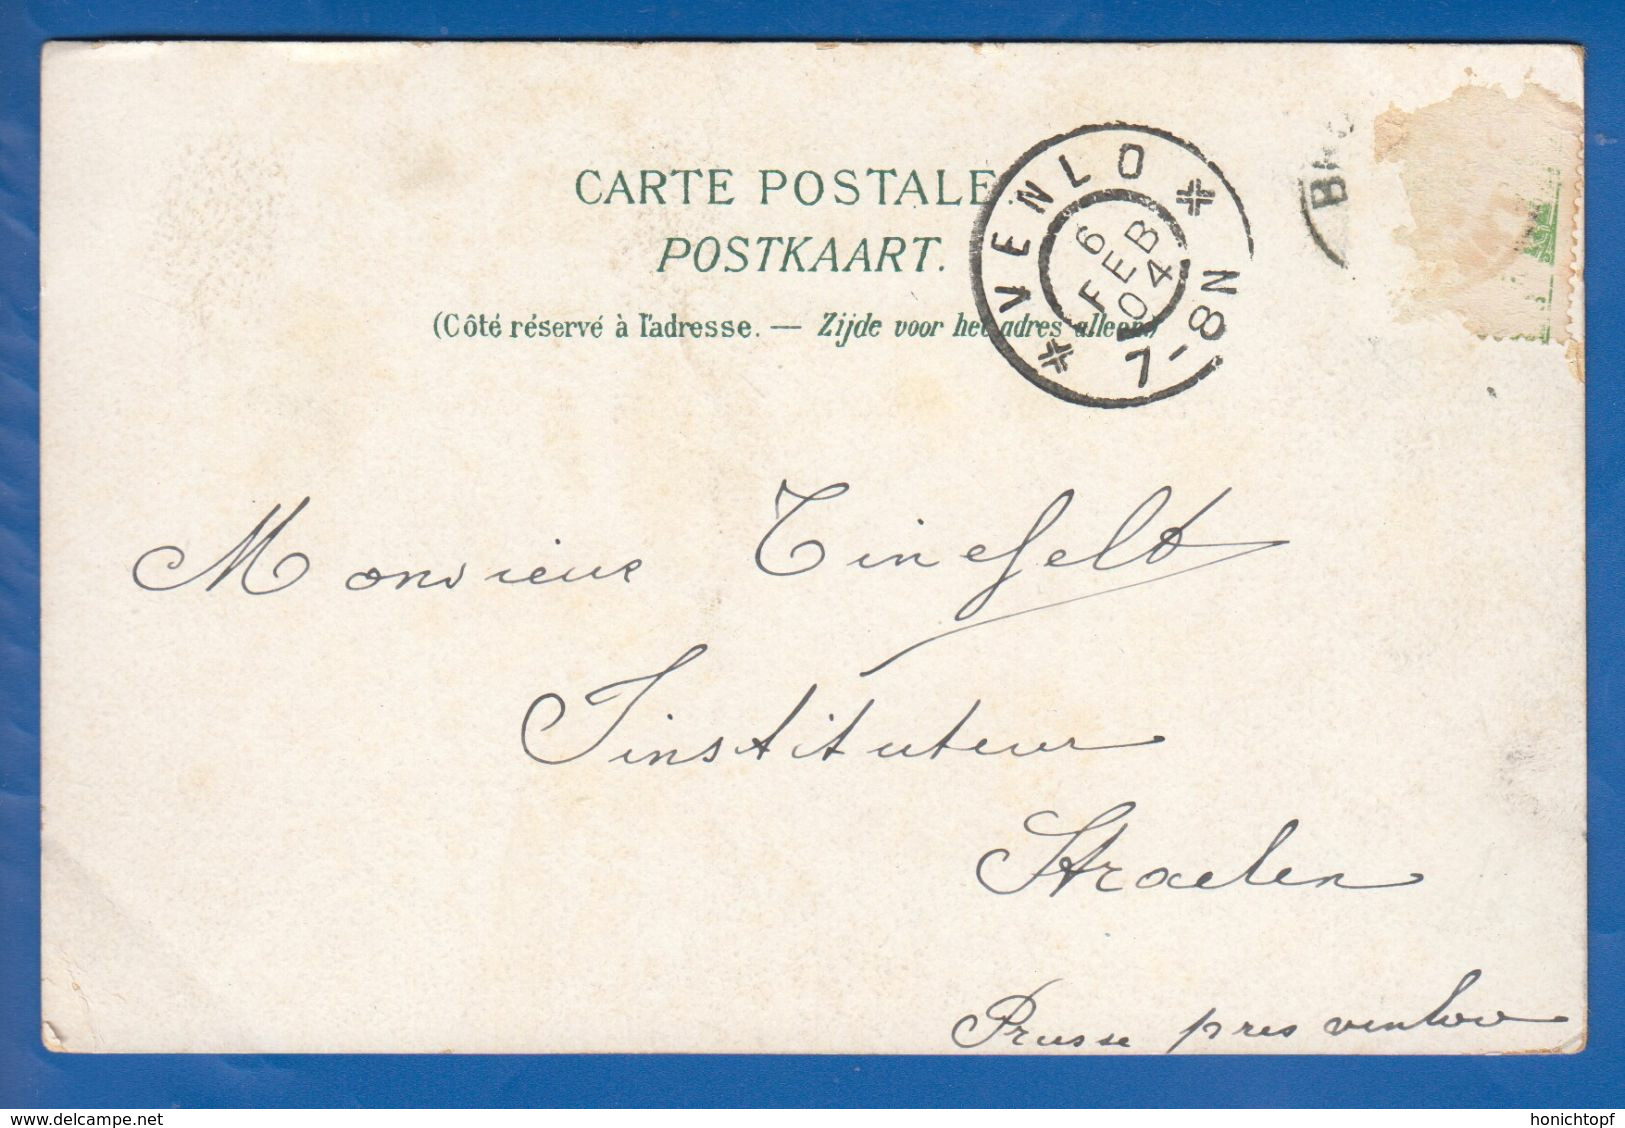 CARTE POSTALE
POSTKAART.
(Côté réservé à l'adresse. — Zijde voor het adres alleen)
VENLO
6 FEB 04
7-8N
Monsieur Tinefelt
Instituteur
Straelen
Prusse pres venloo
delcampe.net
honichtopf